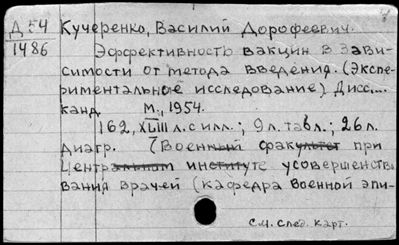 Д 54 Кучеренко, Василий Дорофеевич.
1486 Эффективность вакцин в зави-
симости от метода введения. (Экспе-
риментальное исследование) Дисс....
канд. М., 1954.
162, XLIII л. с илл.; 9 л. табл.; 26 л.
диагр. (Военный факультет при
Центральном институте усовершенство-
вания врачей (кафедра военной эпи-
См. след. карт.